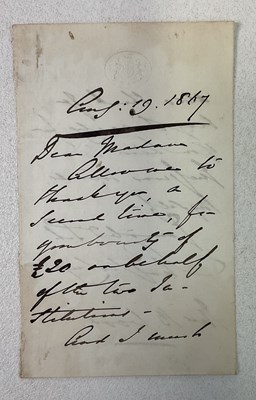 Aug: 19. 1867
Dear Madam
Allow me to
thank you, a
second time, for
your bounty of
£20 on behalf
of the two In-
stitutions -
And I must